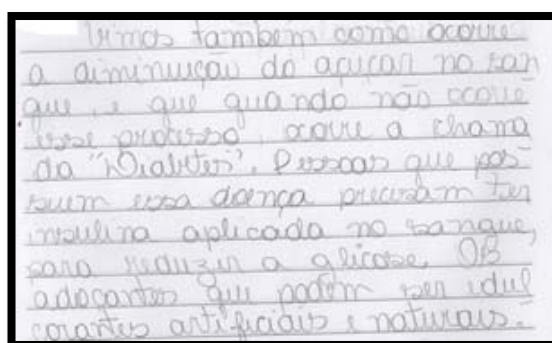 Vimos também como ocorre
a diminuição do açucar no san
gue, e que quando não ocorre
esse processo, ocorre a chama
da "Diabetes". Pessoas que pos
suem essa doença precisam ter
insulina aplicada no sangue,
para reduzir a glicose. OB
adoçantes que podem ser edul
corantes artificiais e naturais.